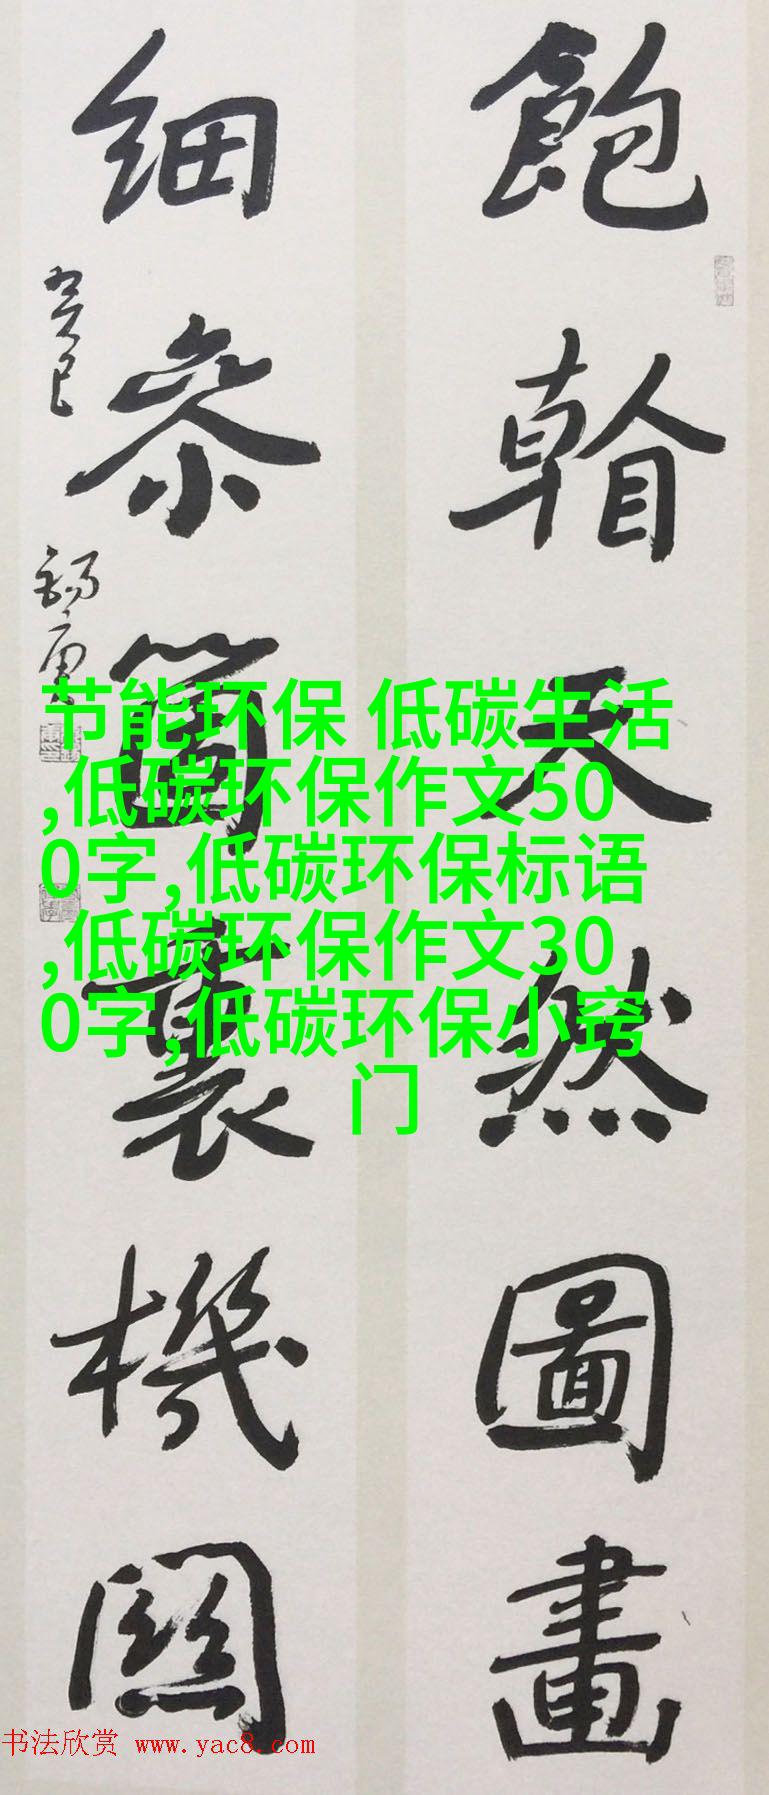 飽天然圖畫
細參箇裏機關
癸巳
节能环保 低碳生活
,低碳环保作文50
0字,低碳环保标语
,低碳环保作文30
0字,低碳环保小窍
门
书法欣赏 www.yac8.com